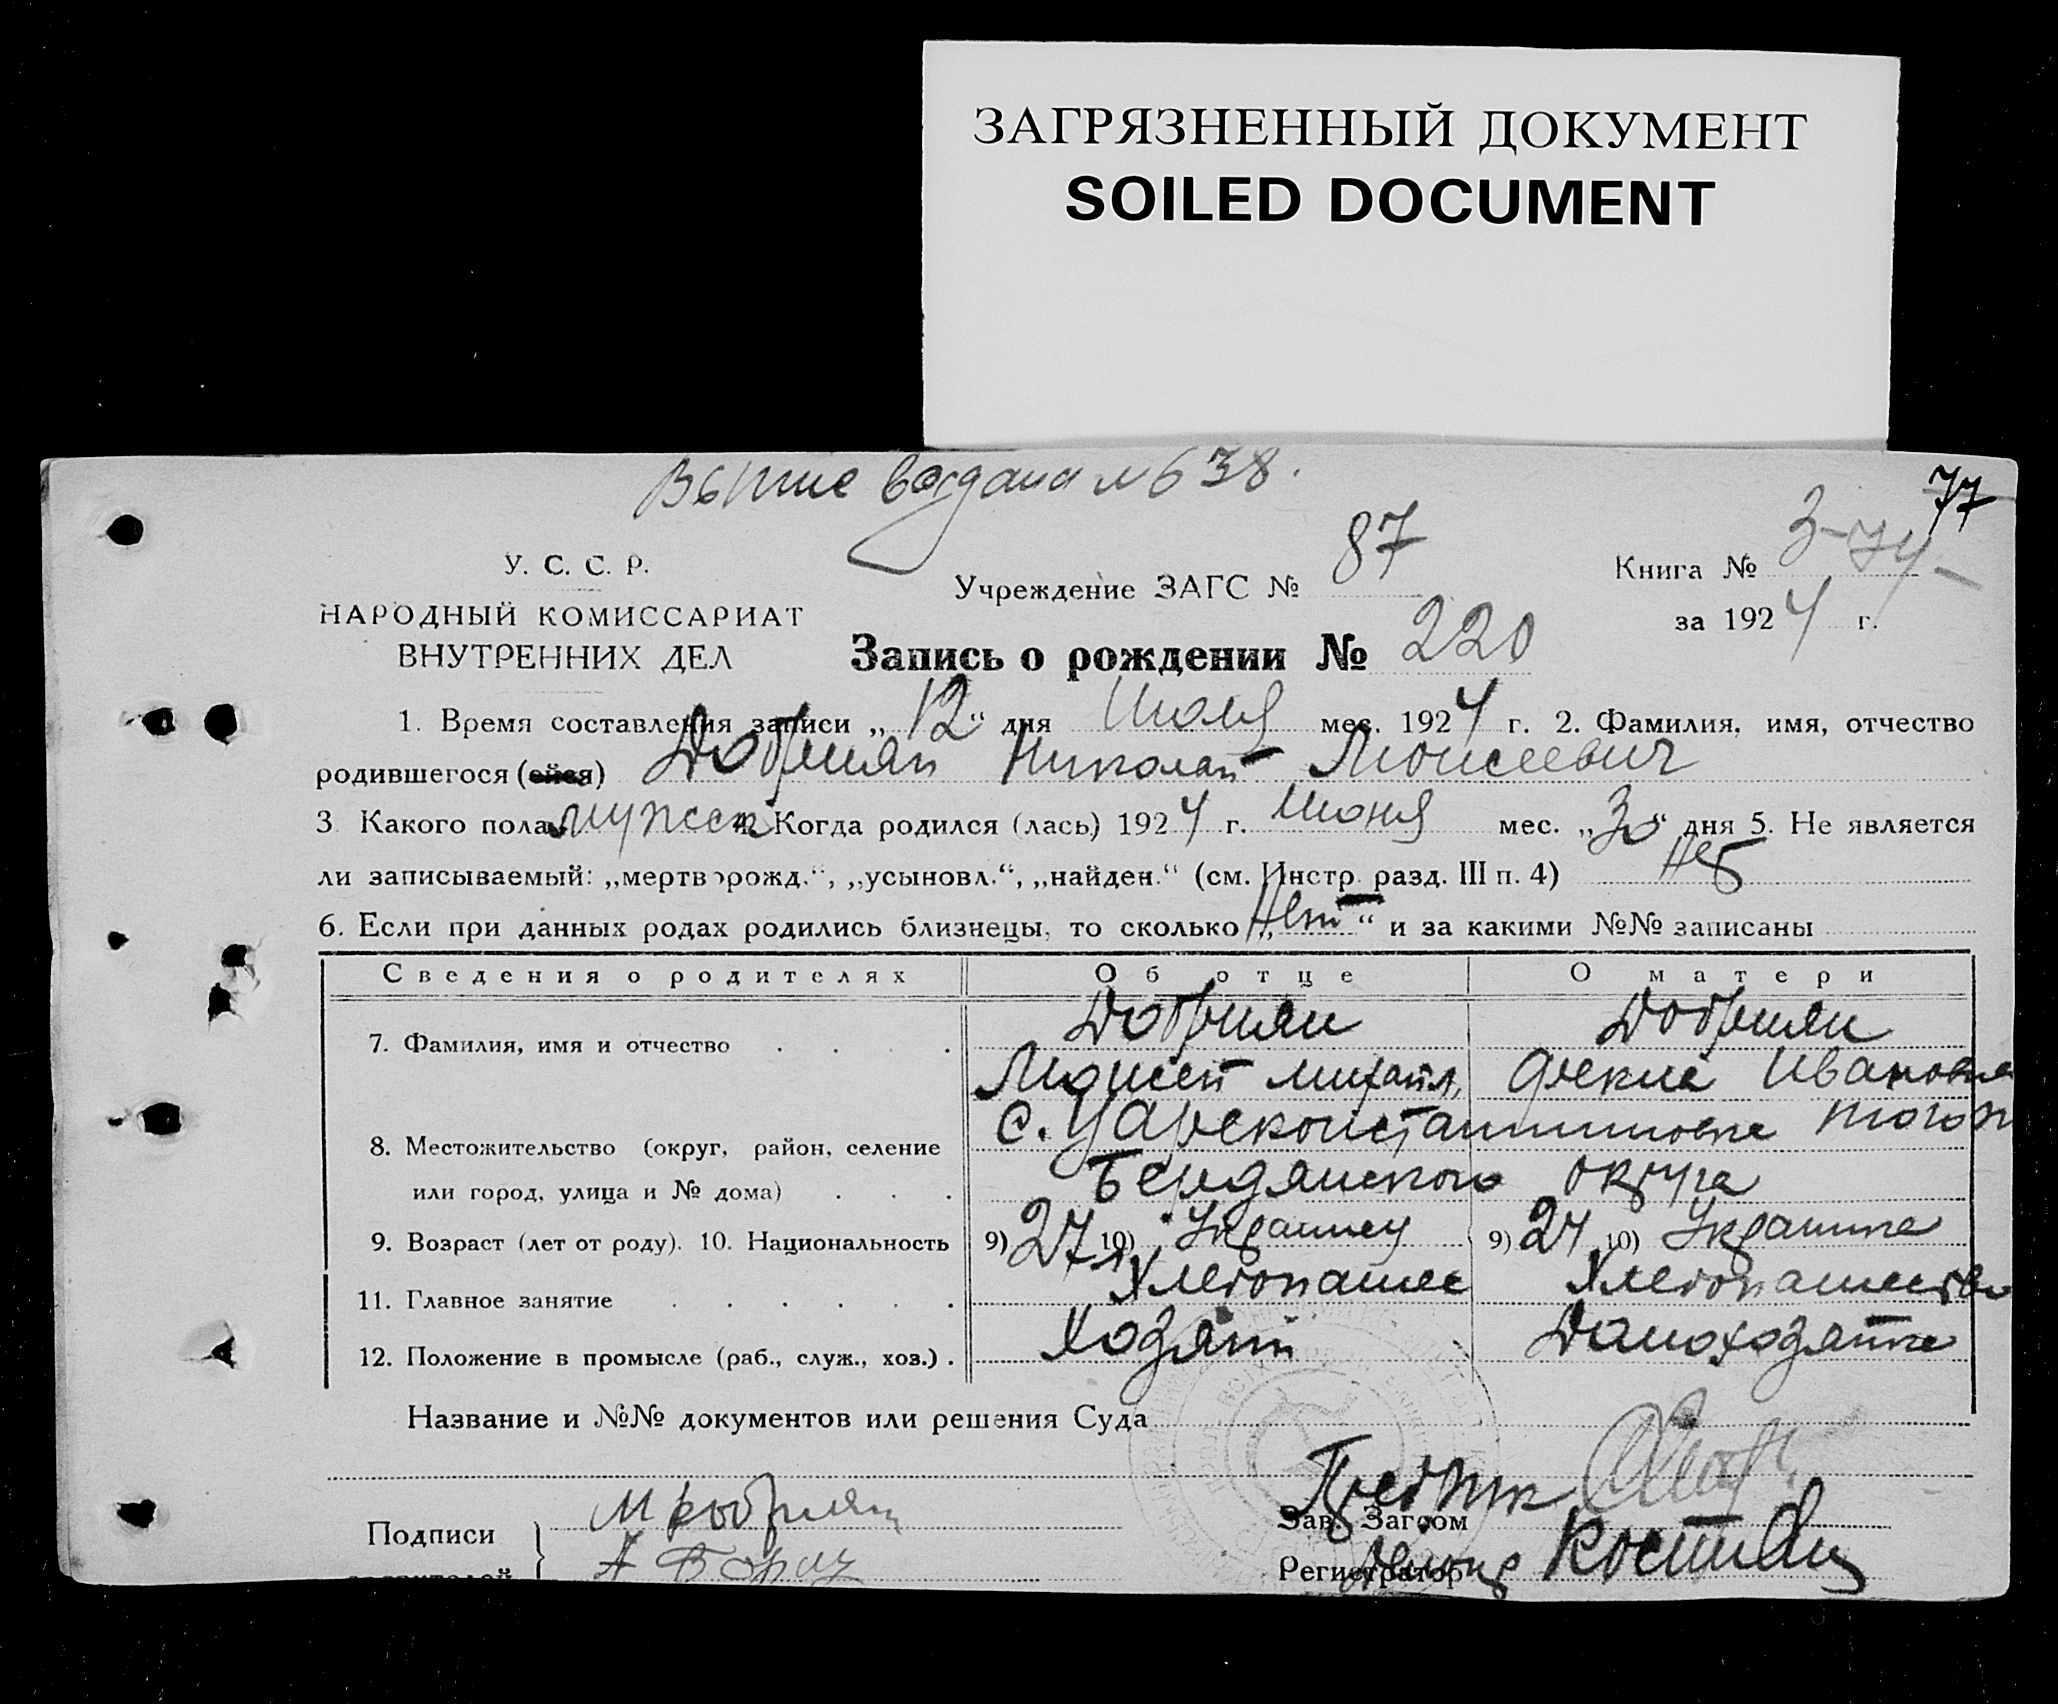 ЗАГРЯЗНЕННЫЙ ДОКУМЕНТ
SOILED DOCUMENT
№ 638.
77
87
3-74
У. С. С. Р.
НАРОДНЫЙ КОМИССАРИАТ
ВНУТРЕННИХ ДЕЛ
Учреждение ЗАГС №
Книга №
за 1924 г.
Запись о рождении № 220
1. Время составления записи „12“ дня Июля мес. 1924 г. 2. Фамилия, имя, отчество
родившегося (ейся) Добриян Николай Моисеевич
3 Какого пола мужск 4. Когда родился (лась) 1924 г. Июня мес. „30“ дня 5. Не является
ли записываемый: „мертворожд.“, „усыновл.“, „найден.“ (см. Инстр. разд. III п. 4) Нет
6. Если при данных родах родились близнецы, то сколько „Нет“ и за какими №№ записаны
Сведения о родителях Об отце О матери
7. Фамилия, имя и отчество Добриян Добриян
Моисей Михайл. Ивановна
8. Местожительство (округ, район, селение с. Цареконстантиновка того ж
или город, улица и № дома) Бердянского округа
9. Возраст (лет от роду). 10. Национальность 9) 27 л 10) Украинец 9) 24 10) Украинка
11. Главное занятие Хлебопашес Хлебопашество
12. Положение в промысле (раб., служ., хоз.) Хозяин Домохозяйка
Название и №№ документов или решения Суда
Подписи М Добриян
Зав. Загсом
Регистратор